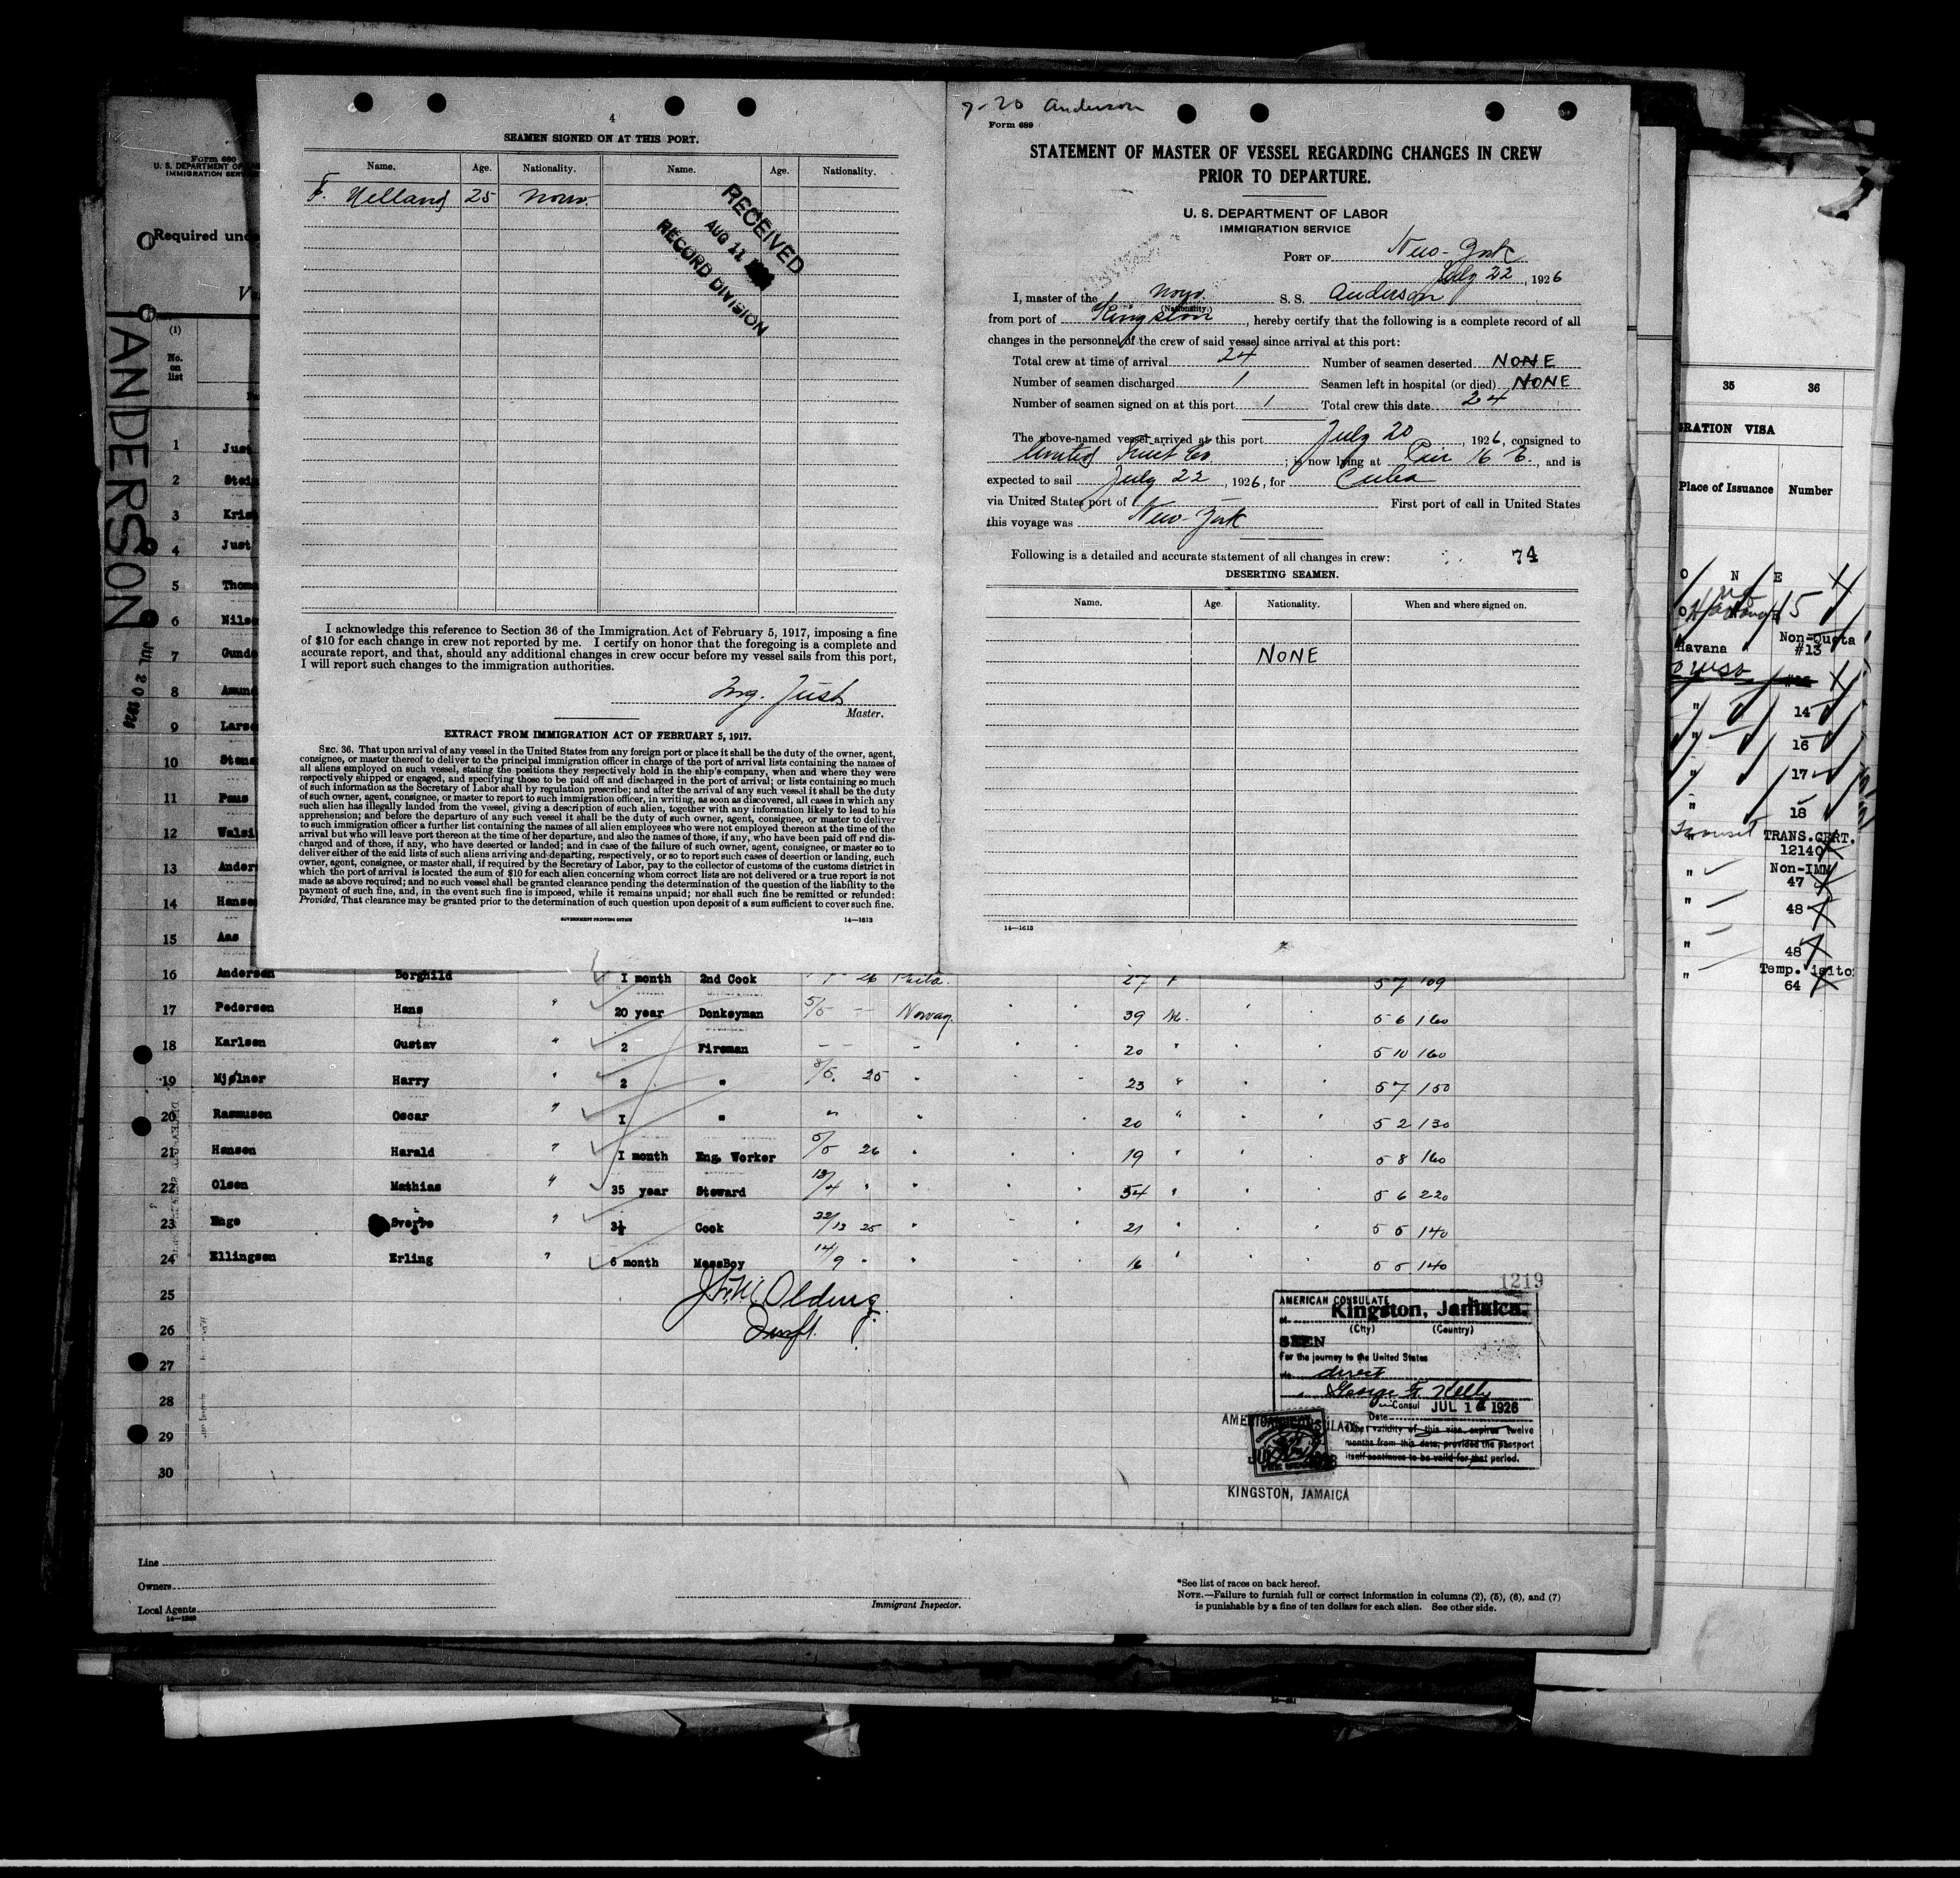 4
SEAMEN SIGNED ON AT THIS PORT.
Name. Age. Nationality. Name. Age. Nationality.
F. Helland 25 Norw.
RECEIVED
AUG 11
RECORD DIVISION
I acknowledge this reference to Section 36 of the Immigration Act of February 5, 1917, imposing a fine
of $10 for each change in crew not reported by me. I certify on honor that the foregoing is a complete and
accurate report, and that, should any additional changes in crew occur before my vessel sails from this port,
I will report such changes to the immigration authorities.
Ing. Just
Master.
EXTRACT FROM IMMIGRATION ACT OF FEBRUARY 5, 1917.
SEC. 36. That upon arrival of any vessel in the United States from any foreign port or place it shall be the duty of the owner, agent,
consignee, or master thereof to deliver to the principal immigration officer in charge of the port of arrival lists containing the names of
all aliens employed on such vessel, stating the positions they respectively hold in the ship's company, when and where they were
respectively shipped or engaged, and specifying those to be paid off and discharged in the port of arrival; or lists containing so much
of such information as the Secretary of Labor shall by regulation prescribe; and after the arrival of any such vessel it shall be the duty
of such owner, agent, consignee, or master to report to such immigration officer, in writing, as soon as discovered, all cases in which any
such alien has illegally landed from the vessel, giving a description of such alien, together with any information likely to lead to his
apprehension; and before the departure of any such vessel it shall be the duty of such owner, agent, consignee, or master to deliver
to such immigration officer a further list containing the names of all alien employees who were not employed thereon at the time of the
arrival but who will leave port thereon at the time of her departure, and also the names of those, if any, who have been paid off and dis-
charged and of those, if any, who have deserted or landed; and in case of the failure of such owner, agent, consignee, or master so to
deliver either of the said lists of such aliens arriving and departing, respectively, or so to report such cases of desertion or landing, such
owner, agent, consignee, or master shall, if required by the Secretary of Labor, pay to the collector of customs of the customs district in
which the port of arrival is located the sum of $10 for each alien concerning whom correct lists are not delivered or a true report is not
made as above required; and no such vessel shall be granted clearance pending the determination of the question of the liability to the
payment of such fine, and, in the event such fine is imposed, while it remains unpaid; nor shall such fine be remitted or refunded:
Provided, That clearance may be granted prior to the determination of such question upon deposit of a sum sufficient to cover such fine.
GOVERNMENT PRINTING OFFICE 14—1613
7-20 Anderson
Form 689
STATEMENT OF MASTER OF VESSEL REGARDING CHANGES IN CREW
PRIOR TO DEPARTURE.
U. S. DEPARTMENT OF LABOR
IMMIGRATION SERVICE
PORT OF New-York
July 22, 1926
I, master of the Norw. S. S. Anderson
(Nationality.)
from port of Kingston, hereby certify that the following is a complete record of all
changes in the personnel of the crew of said vessel since arrival at this port:
Total crew at time of arrival 24 Number of seamen deserted NONE
Number of seamen discharged 1 Seamen left in hospital (or died) NONE
Number of seamen signed on at this port 1 Total crew this date 24
The above-named vessel arrived at this port July 20, 1926, consigned to
United Fruit Co; is now lying at Pier 16 E., and is
expected to sail July 22, 1926, for Cuba
via United States port of First port of call in United States
this voyage was New-York
Following is a detailed and accurate statement of all changes in crew: 74
DESERTING SEAMEN.
Name. Age. Nationality. When and where signed on.
NONE
14—1613
Form 680
U. S. DEPARTMENT OF
IMMIGRATION
Required
ANDERSON
JUL 20 1926
(1)
No.
on
list
1
2
3
4 Just
5
6
7
8
9
10
11 Paus
12
13
14
15 Aas
16 Andersen Borghild 1 month 2nd Cook 26 Phila. 27 F 5 7 109
17 Pedersen Hans " 20 year Donkeyman 5/5 -- Norway. 39 M. 5 6 160
18 Karlsen Gustav " 2 Fireman - - - 20 " 5 10 160
19 Mjølner Harry " 2 " 8/5. 25 " 23 " 5 7 150
20 Rasmusen Oscar " I " " 20 " 5 2 130
21 Hansen Harald " I month Eng. Worker 5/5 26 " 19 " 5 8 160
22 Olsen Mathias " 35 year Steward 13/4 " " 54 " 5 6 220
23 Enge Sverre " 3½ Cook 22/12 25 " 21 " 5 5 140
24 Ellingsen Erling " 6 month MessBoy 14/9 " " 16 " 5 5 140
25
26
27
28
29
30
1219
AMERICAN CONSULATE
at Kingston, Jamaica.
(City) (Country)
SEEN
For the journey to the United States
via direct
George F. Kelly
Consul JUL 1 1926
Date
The validity of this visa expires twelve
months from this date, provided the passport
itself continues to be valid for that period.
AMERICAN CONSULATE
KINGSTON, JAMAICA
Line
Owners
Local Agents
14—1240
Immigrant Inspector.
*See list of races on back hereof.
NOTE.—Failure to furnish full or correct information in columns (2), (5), (6), and (7)
is punishable by a fine of ten dollars for each alien. See other side.
35 36
GRATION VISA
Place of Issuance Number
O N E
5
Havana Non-Quota
#13
" 14
" 16
" 17
" 18
Transit TRANS.CERT.
12140
" Non-IMM
47
" 48
" 48
" Temp.
64